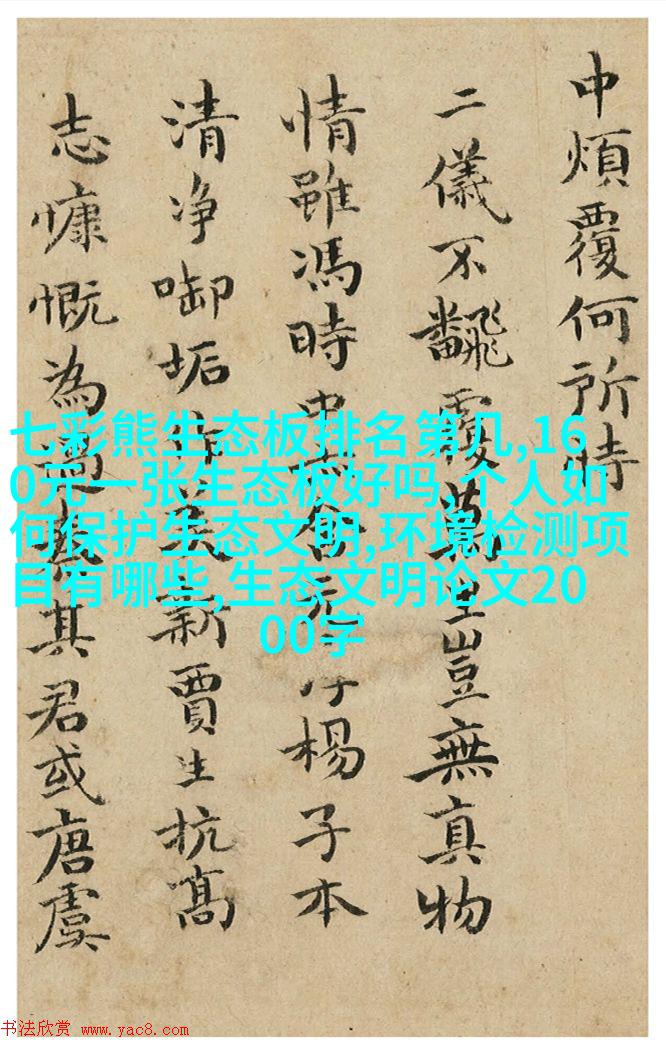 中煩覆何所
二儀不飜覆萬里豈無真物
情雖馮時楊子本
清净啣垢美新賈生抗高
志慷慨為其君或唐虞
七彩熊生态板排名第几,16
0元一张生态板好吗,个人如
何保护生态文明,环境检测项
目有哪些,生态文明论文20
00字
书法欣赏 www.yac8.com